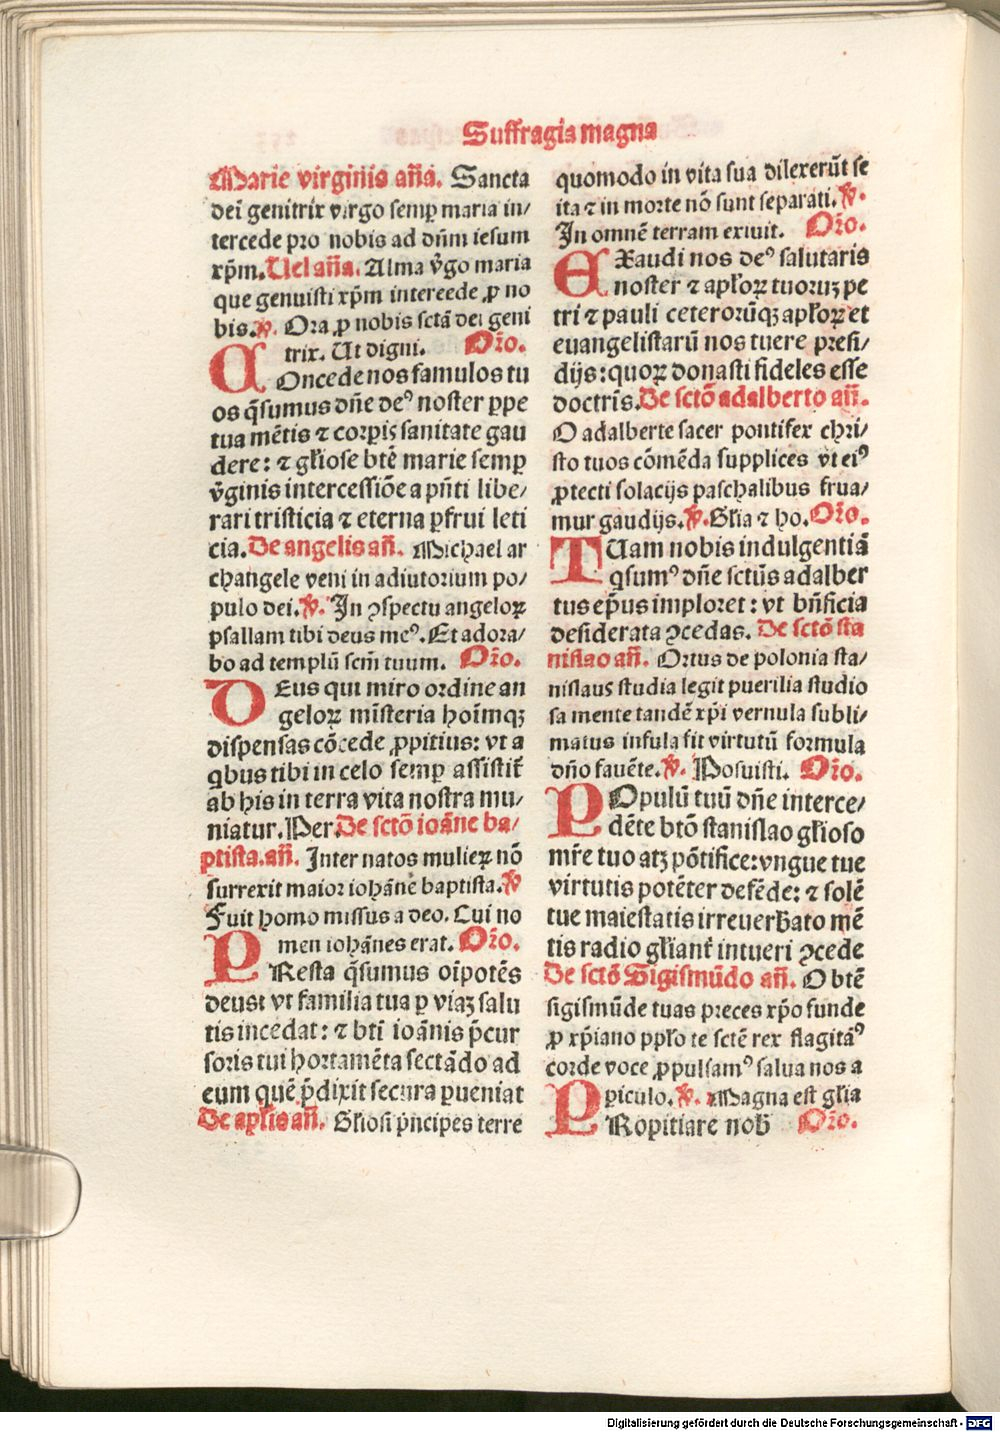 Suffragia magna
Marie virginis añа. Sancta
dei genitrix virgo semꝑ maria in/
tercede pro nobis ad dñm iesum
xp̄m. Uel añа. Alma v̓go maria
que genuisti xp̄m intercede ꝓ no
bis. ℣. Ora ꝓ nobis sctā dei geni
trix. Ut digni. Or̃o.
COncede nos famulos tu
os q̄sumus dñe deꝰ noster ꝑpe
tua mētis ⁊ corꝑis sanitate gau
dere: ⁊ gl̓iose btē marie semꝑ
v̓ginis intercessiōe a pñti libe/
rari tristicia ⁊ eterna ꝑfrui leti
cia. De angelis añ. Michael ar
changele veni in adiutorium po/
pulo dei. ℣. In ꝯspectu angeloꝝ
psallam tibi deus meꝰ. Et adora/
bo ad templū scm̄ tuum. Or̃o.
DEus qui miro ordine an
geloꝝ misteria hoīmqꝫ
dispensas cōcede ꝓpitius: vt a
qbus tibi in celo semꝑ assistit̃
ab his in terra vita nostra mu/
niatur. Per. De sctō ioāne ba/
ptista. añ. Inter natos mulieꝝ nō
surrexit maior iohāne baptista. ℣
Fuit homo missus a deo. Cui no
men iohānes erat. Or̃o.
PResta q̄sumus oīpotēs
deus: vt familia tua ꝑ viaꝫ salu
tis incedat: ⁊ bti ioānis p̄cur
soris tui hortamēta sectādo ad
eum quē p̄dixit secura ꝑueniat
De apl̓is añ. Gl̓iosi pn̄cipes terre
quomodo in vita sua dilexerūt se
ita ⁊ in morte nō sunt separati. ℣.
In omnē terram exiuit. Or̃o.
EXaudi nos deꝰ salutaris
noster ⁊ apl̓oꝝ tuoruꝫ pe
tri ⁊ pauli ceterorūqꝫ apl̓oꝝ et
euangelistarū nos tuere presi/
dijs: quoꝝ donasti fideles esse
doctrīs. De sctō adalberto añ.
O adalberte sacer pontifex chri/
sto tuos cōmēda supplices vt eiꝰ
ꝓtecti solacijs paschalibus frua/
mur gaudijs. ℣. Gl̓ia ⁊ ho. Or̃o.
TUam nobis indulgentiā
qsumꝰ dñe sctūs adalber
tus ep̄us imploret: vt bñficia
desiderata ꝯcedas. De sctō sta
nislao añ. Ortus de polonia sta/
nislaus studia legit puerilia studio
sa mente tandē xp̄i vernula subli/
matus infula fit virtutū formula
dño fauēte. ℣. Posuisti. Or̃o.
POpulū tuū dñe interce/
dēte btō stanislao gl̓ioso
mr̄e tuo atꝫ pōtifice: vngue tue
virtutis potēter defēde: ⁊ solē
tue maiestatis irreuerb̓ato mē
tis radio gl̓iant̃ intueri ꝯcede
De sctō Sigismūdo añ. O btē
sigismūde tuas preces xp̄o funde
ꝓ xp̄iano ppl̓o te sctē rex flagitāꝰ
corde voce ꝓpulsamꝰ salua nos a
ꝑiculo. ℣. Magna est gl̓ia
PRopitiare nob̓ Or̃o.
Digitalisierung gefördert durch die Deutsche Forschungsgemeinschaft - DFG